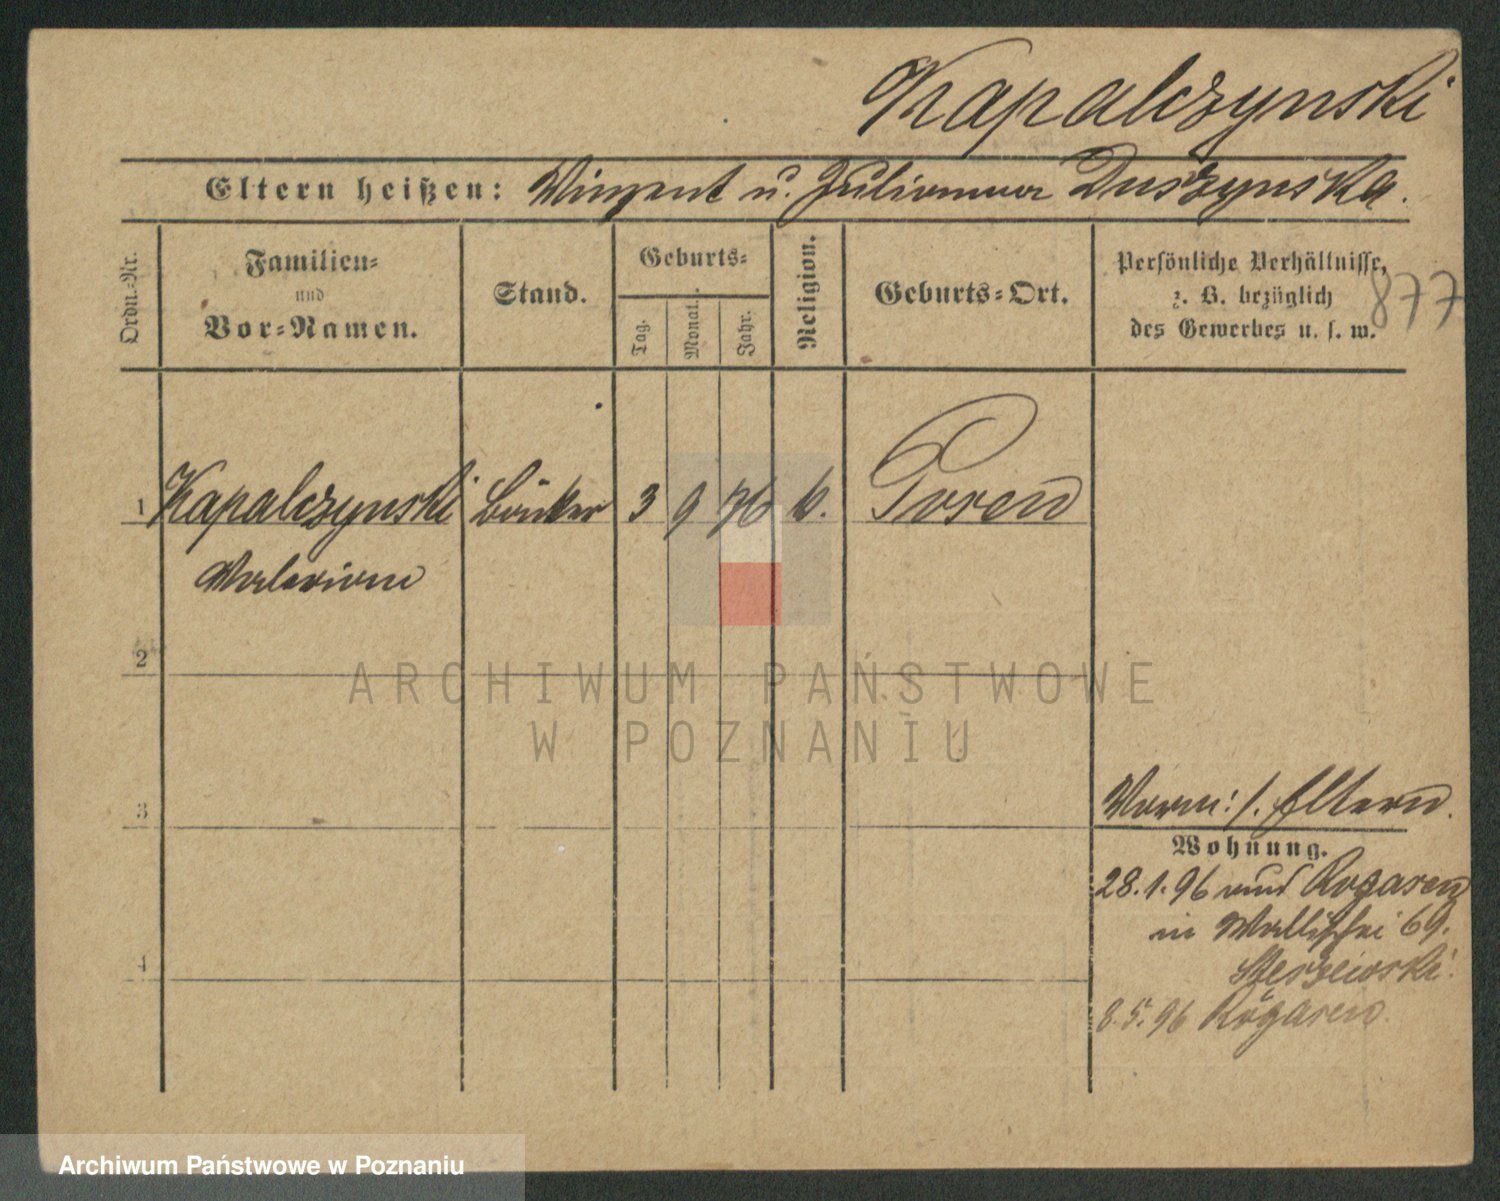 Kapalczynski
Eltern heißen: Vinzent u. Julianna Duszynska.
Ordn.-Nr.
Familien-
und
Vor-Namen.
Stand.
Geburts-
Tag.
Monat.
Jahr.
Religion.
Geburts-Ort.
Persönliche Verhältnisse,
z. B. bezüglich
des Gewerbes u. s. w.
877
1 Kapalczynski Bäcker 3 9 76 k. Posen
Valerian
2
3
4
Vorm: s. Eltern.
Wohnung.
28.1.96 aus Rogasen
in Wallischei 69.
8.5.96 Rogasen.
ARCHIWUM PAŃSTWOWE
W POZNANIU
Archiwum Państwowe w Poznaniu